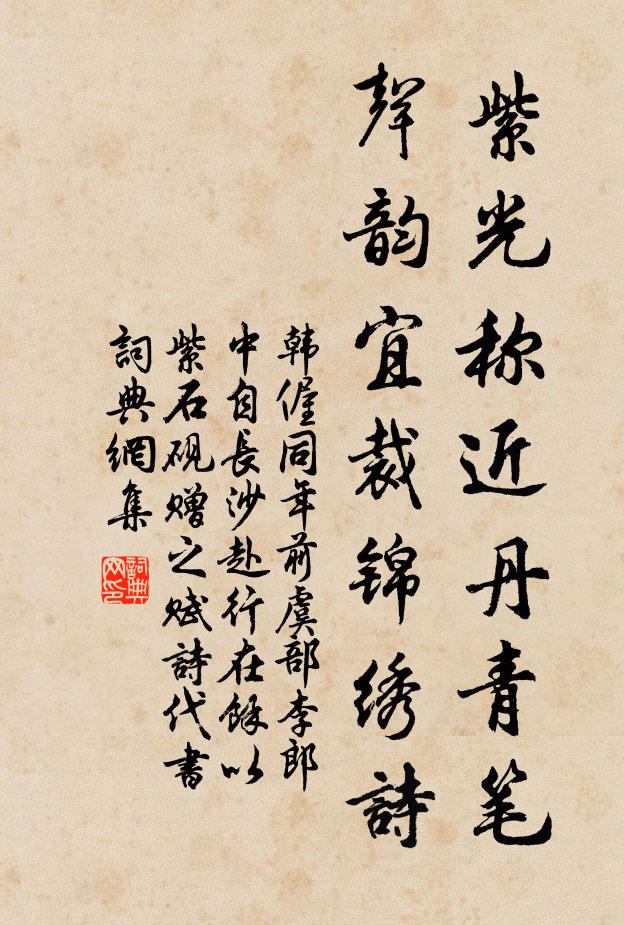 紫光称近丹青笔
聲韵宜裁錦绣詩
韩偓同年前虞部李郎
中自長沙赴行在餘以
紫石砚赠之赋詩代書
詞典網集
詞典
网印